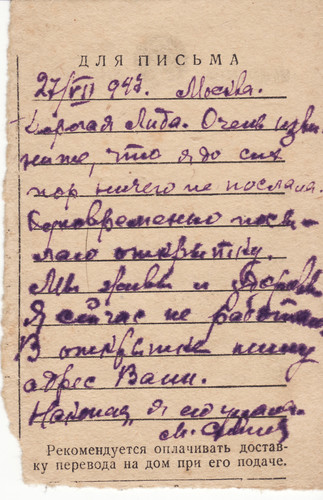 ДЛЯ ПИСЬМА
27/VII 947. Москва.
Дорогая Люба. Очень изви
ните, что я до сих
пор ничего не послала.
Одновременно посы
лаю открытку.
Мы живы и здоровы
Я сейчас не работаю
В открытке пишу
адрес Вали.
я
М.
Рекомендуется оплачивать достав-
ку перевода на дом при его подаче.